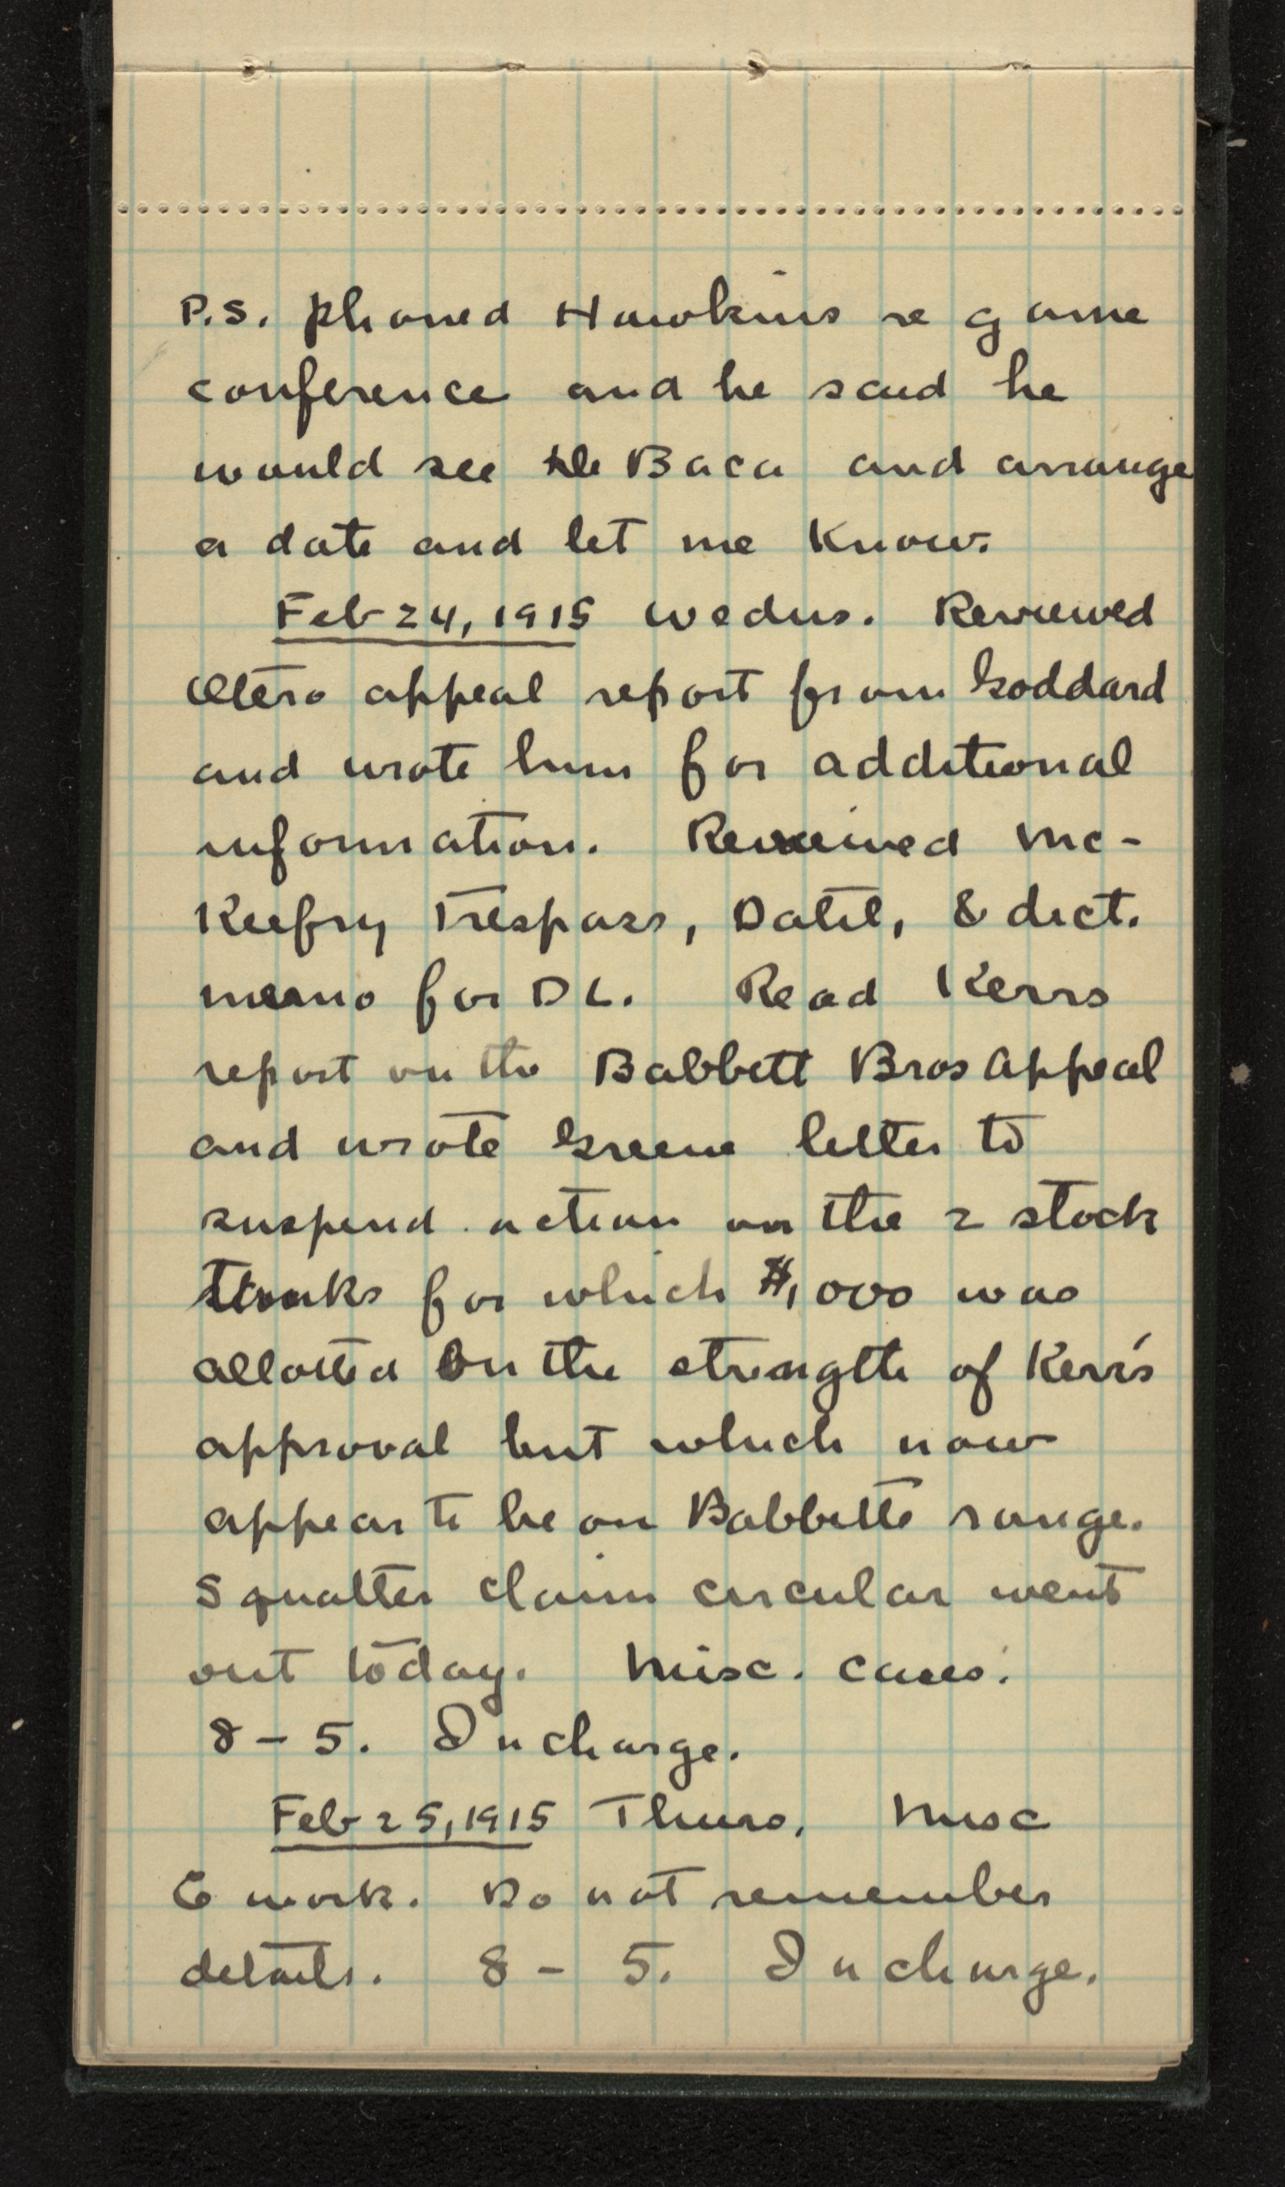 P.S. phoned Hawkins re game
conference and he said he
would see de Baca and arrange
a date and let me know.
Feb 24, 1915 Wedns. Reviewed
Otero appeal report from Goddard
and wrote him for additional
information. Reviewed Mc-
Keefry Trespass, Datil, & dict.
memo for DL. Read Kerrs
report on the Babbett Bros Appeal
and wrote Greene letter to
suspend action on the 2 stock
tanks for which $1,000 was
allotted on the strength of Kerr's
approval but which now
appear to be on Babbetts range.
Squatter claim circular went
out today. Misc. cases.
8-5. In charge.
Feb 25, 1915 Thurs. Misc
G work. Do not remember
details. 8 - 5. In charge.